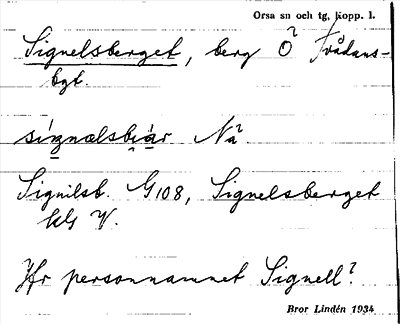 Orsa sn och tg, Kopp. l.
Signelsberget, berg Ö? Frådans-
bgt.
signælsbiär Nä?
Signilsb. G108, Signelsberget
V.
Jfr personnamnet Signell?
Bror Lindén 1934